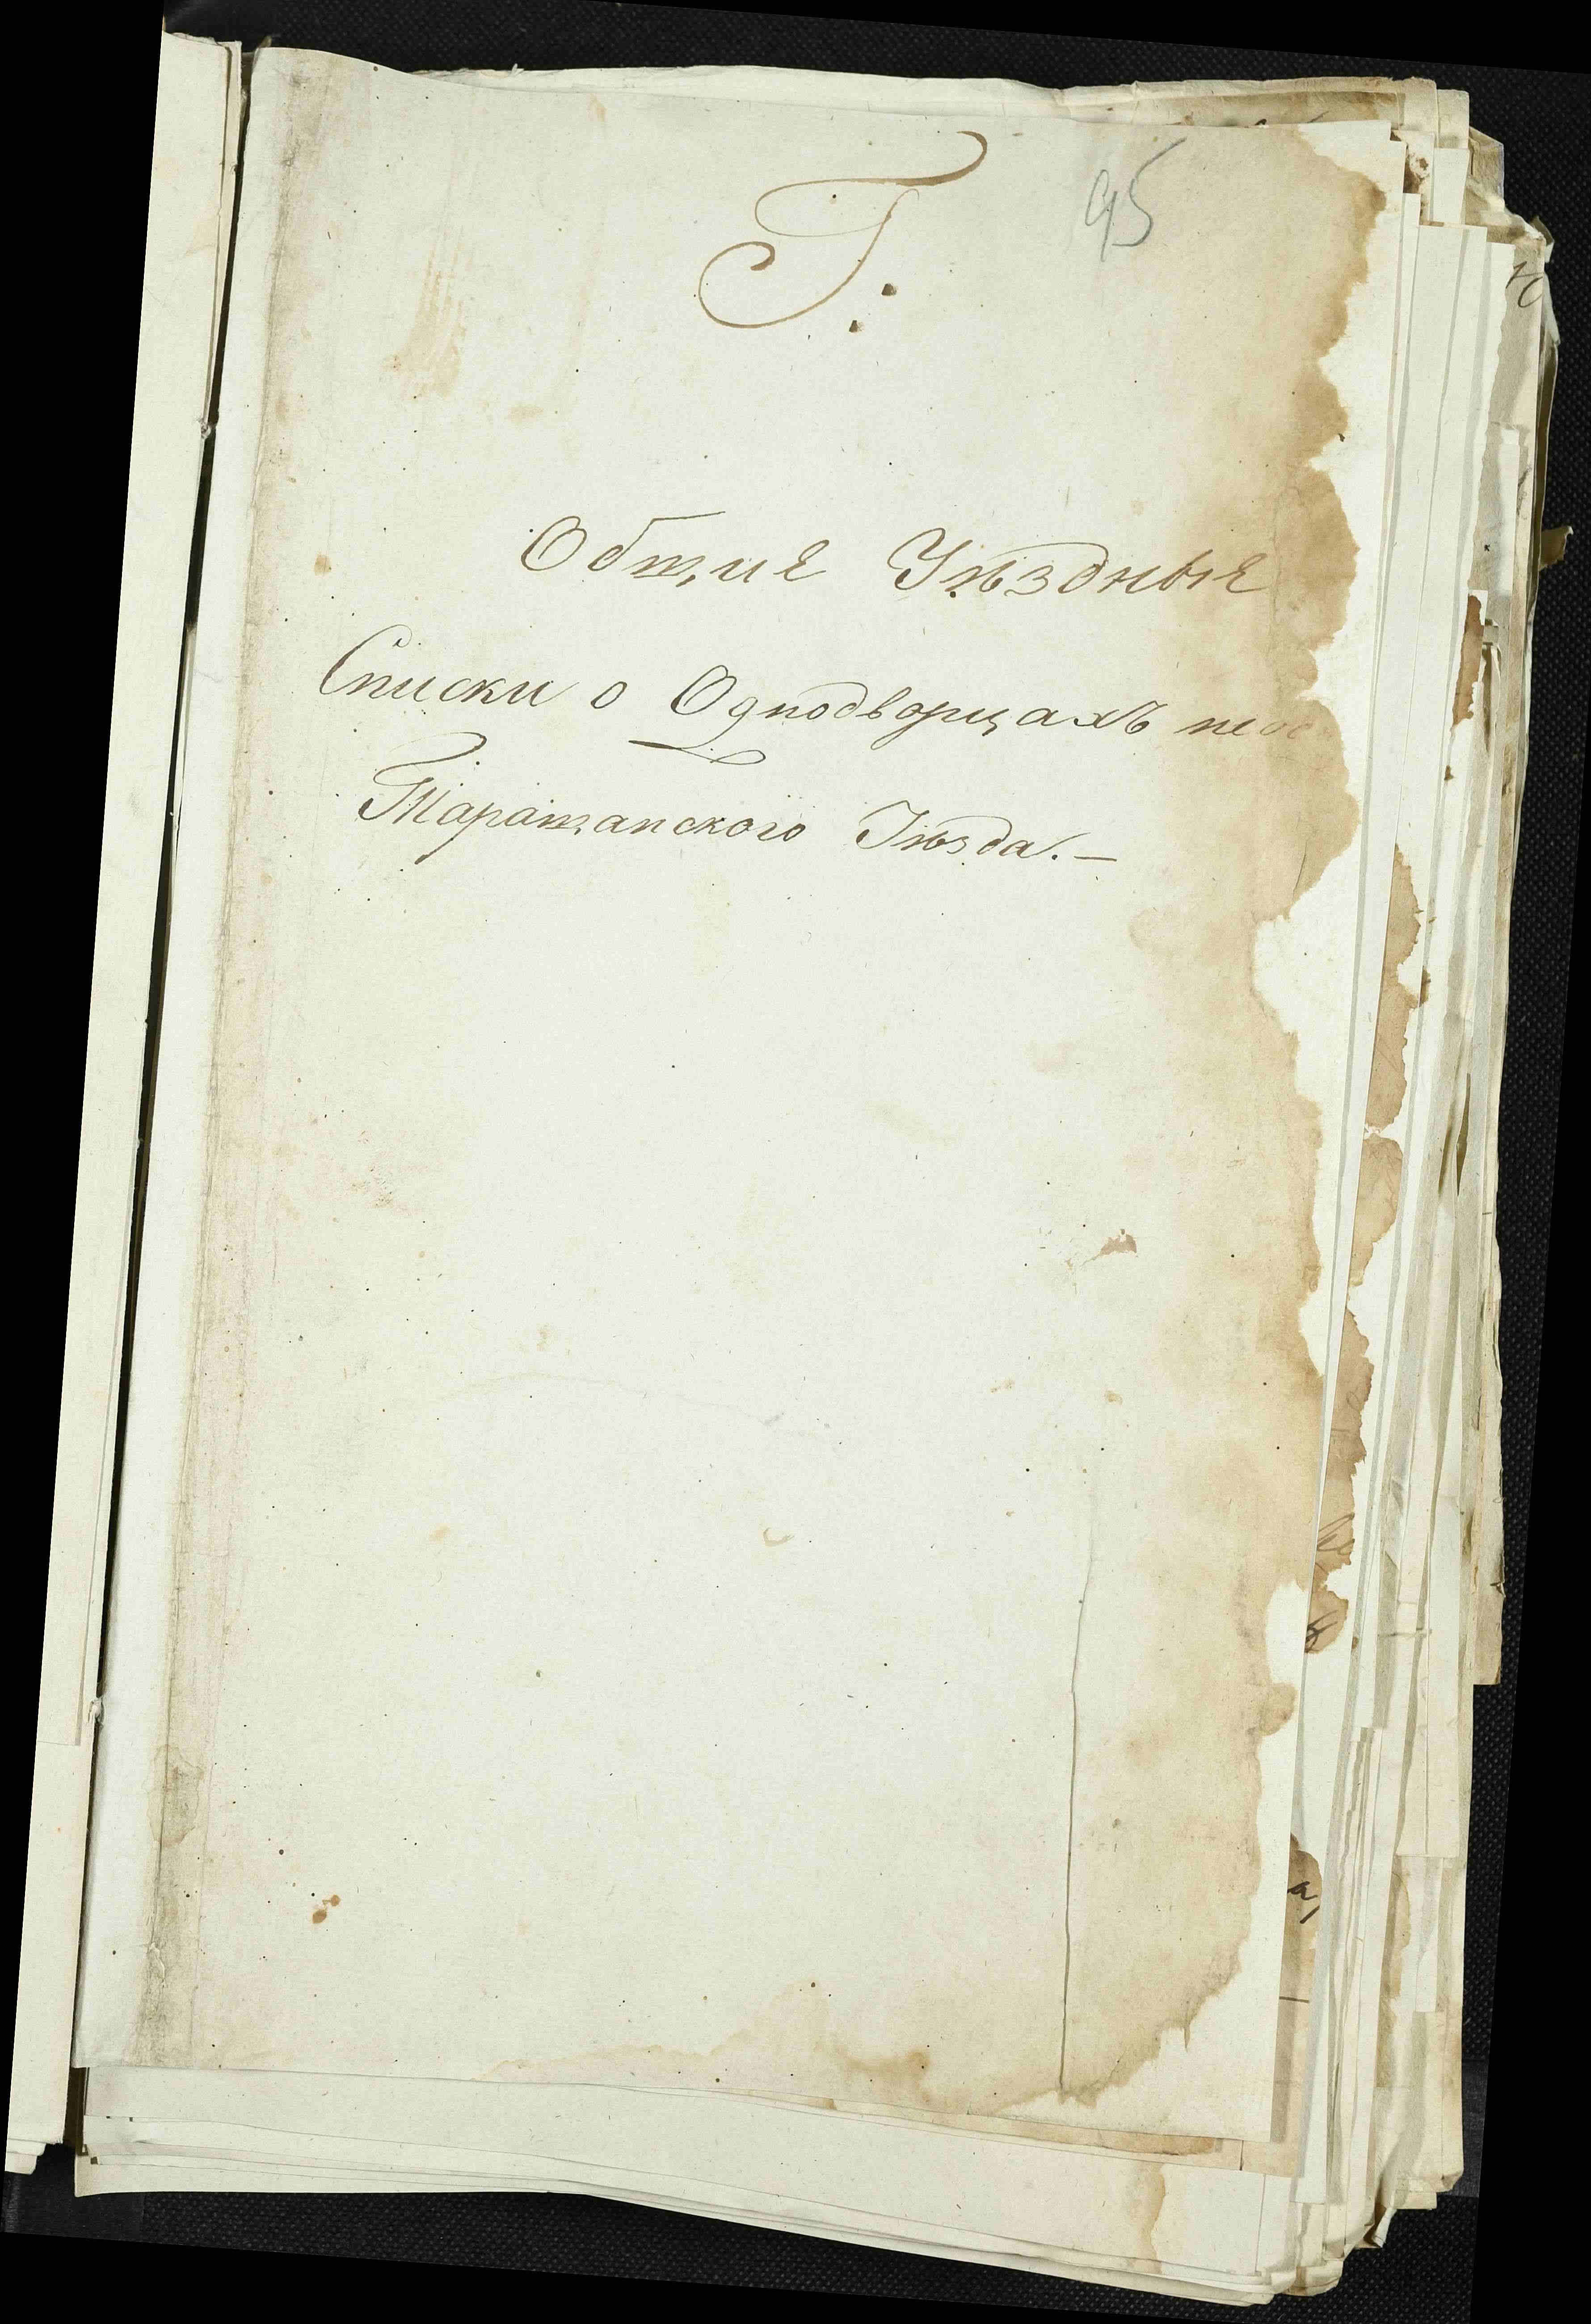 Г:
95
Общие Уѣздные
Списки о Однодворцахъ
Таращанского Уѣзда.—